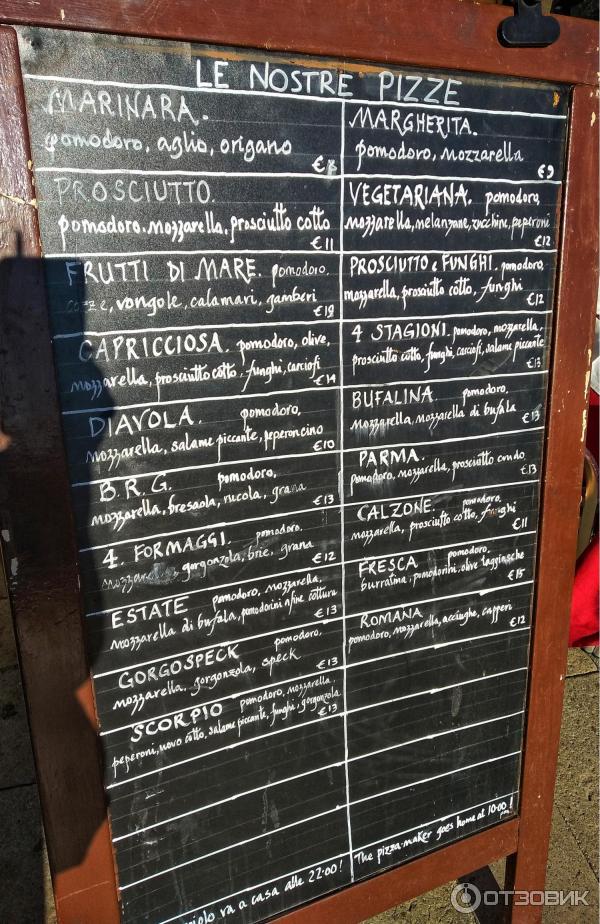 LE NOSTRE PIZZE
MARINARA.
pomodoro, aglio, origano
PROSCIUTTO.
pomodoro.mozzarella, prosciutto cotto
€11
FRUTTI DI MARE. pomodoro,
cozze, vongole, calamari, gamberi
€19
CAPRICCIOSA. pomodoro, olive,
mozzarella, prosciutto cotto. funghi, carciofi
€14
DIAVOLA. pomodoro,
mozzarella, salame piccante, peperoncino
€10
B.R.G. pomodoro,
mozzarella, bresaola, rucola, grana
€13
4. FORMAGGI. pomodoro,
mozzarella, gorgonzola, brie, grana
€12
ESTATE pomodoro, mozzarella,
mozzarella di bufala, pomodorini a fine cottura
€13
GORGOSPECK pomodoro,
mozzarella, gorgonzola, speck
€13
SCORPIO pomodoro, mozzarella,
peperoni, uovo cotto, salame piccante, funghi, gorgonzola
€13
va a casa alle 22:00!
MARGHERITA.
pomodoro, mozzarella
€9
VEGETARIANA. pomodoro,
mozzarella, melanzane, zucchine, peperoni
€12
PROSCIUTTO e FUNGHI. pomodoro,
mozzarella, prosciutto cotto, funghi
€12
4 STAGIONI. pomodoro, mozzarella,
prosciutto cotto, funghi, carciofi, salame piccante
€13
BUFALINA. pomodoro,
mozzarella, mozzarella di bufala
€13
PARMA.
pomodoro, mozzarella, prosciutto crudo
€13
CALZONE. pomodoro,
mozzarella, prosciutto cotto, funghi
€11
FRESCA pomodoro,
burratina, pomodorini, olive taggiasche
€15
ROMANA
pomodoro, mozzarella, acciughe, capperi
€12
The pizza-maker goes home at 10:00!
ОТЗОВИК